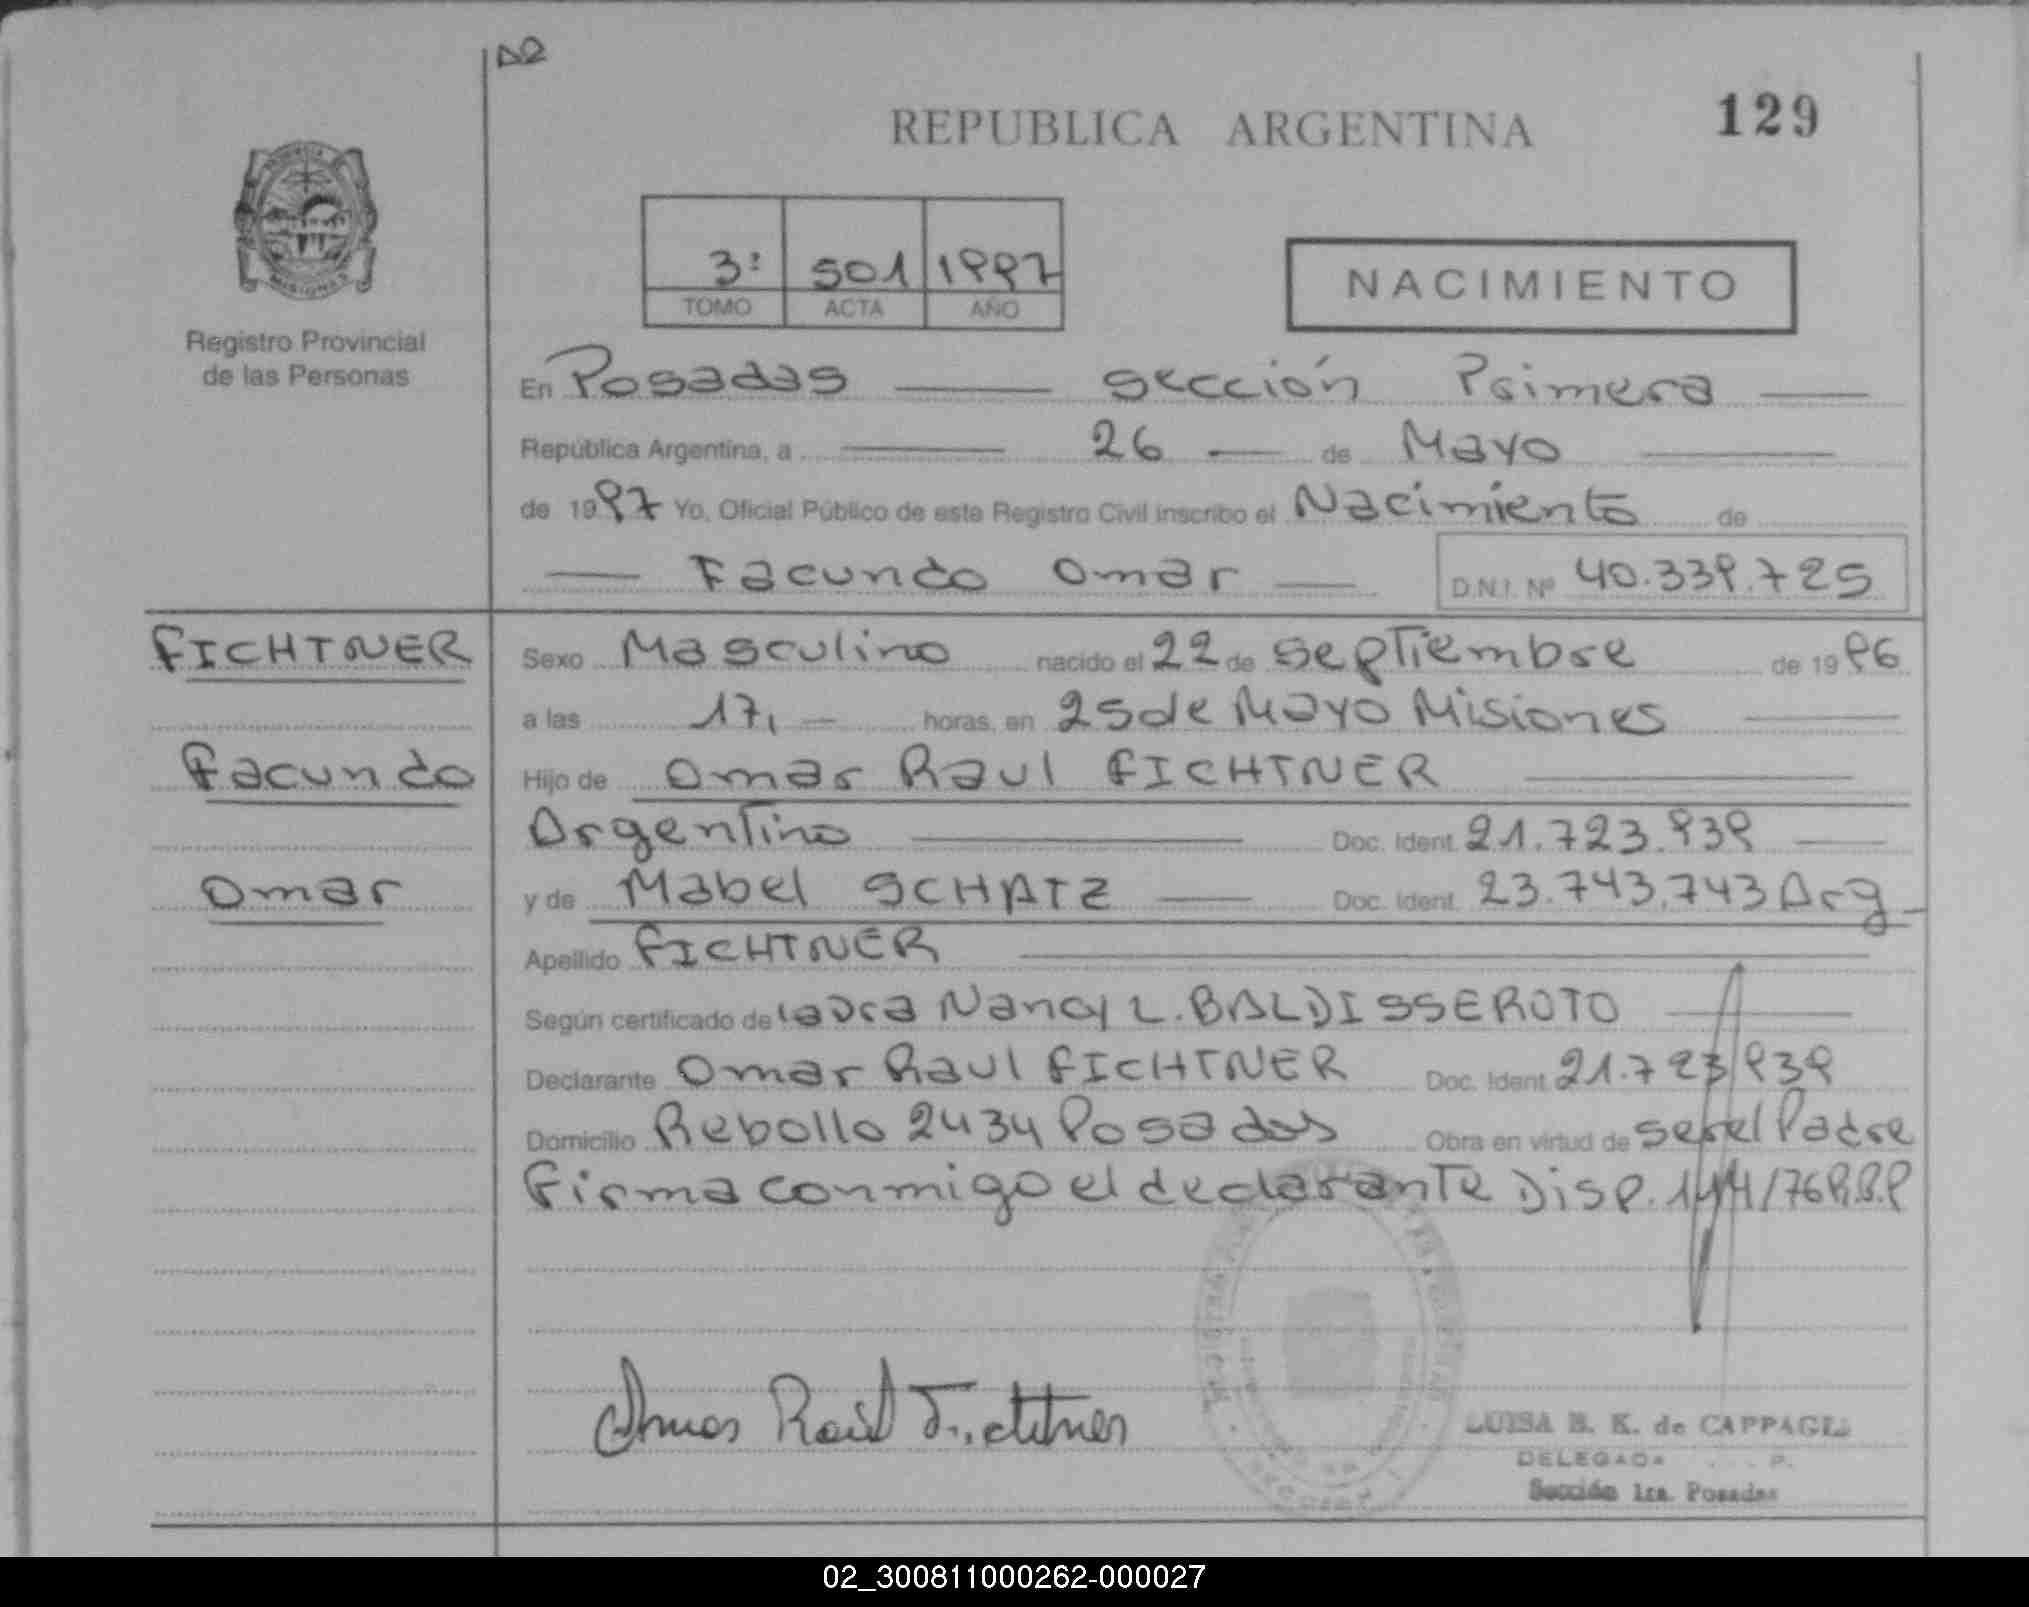 REPUBLICA ARGENTINA
129
3º 501 1997
TOMO ACTA AÑO
NACIMIENTO
Registro Provincial
de las Personas
En Posadas sección Primera
República Argentina, a 26 de Mayo
de 1997 Yo, Oficial Público de este Registro Civil inscribo el Nacimiento de
Facundo Omar D.N.I. Nº 40.339.725
FICHTNER
Facundo
Omar
Sexo Masculino nacido el 22 de septiembre de 1996
a las 17, horas, en 25 de Mayo Misiones
Hijo de Omar Raul FICHTNER
Argentino Doc. Ident. 21.723.939
y de Mabel SCHATZ Doc. Ident. 23.743.743 Arg
Apellido FICHTNER
Según certificado de la Dra Nancy L. BALDISSEROTO
Declarante Omar Raul FICHTNER Doc. Ident. 21.723.939
Domicilio Rebollo 2434 Posadas Obra en virtud de ser el Padre
Firma conmigo el declarante Disp. 144/76 R.P.P
Omar Raúl Fichtner
LUISA B. K. de CAPPAGLI
DELEGADA P.
Sección 1ra. Posadas
02_300811000262-000027